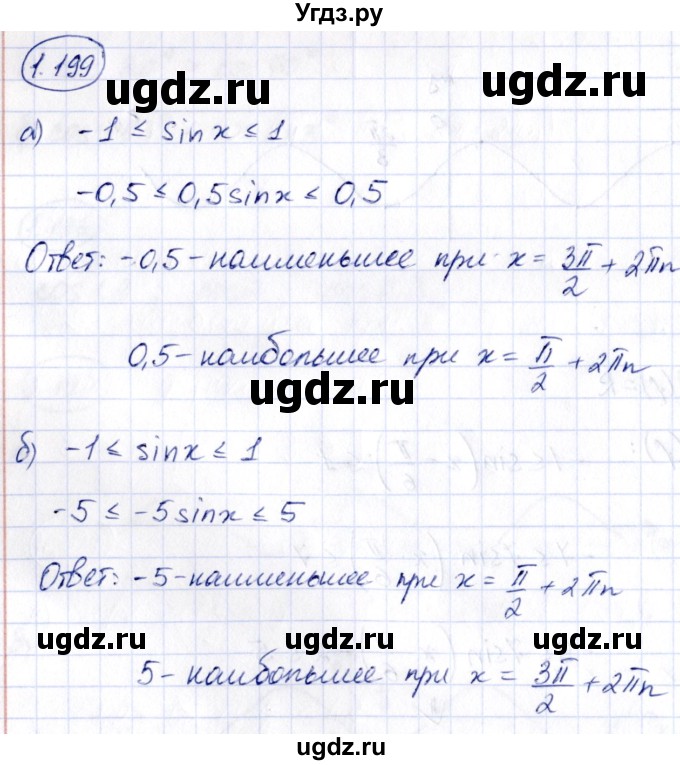 Угдз.ру
1.199
ugdz.ru ugdz.ru
а) -1 ≤ sinx ≤ 1
-0,5 ≤ 0,5sinx ≤ 0,5
Ответ: -0,5 - наименьшее при x = 3π/2 + 2πn
0,5 - наибольшее при x = π/2 + 2πn
ugdz.ru
б) -1 ≤ sinx ≤ 1
-5 ≤ -5sinx ≤ 5
Ответ: -5 - наименьшее при x = π/2 + 2πn
ugdz.ru ugdz.ru ugdz.ru
5 - наибольшее при x = 3π/2 + 2πn
ugdz.ru